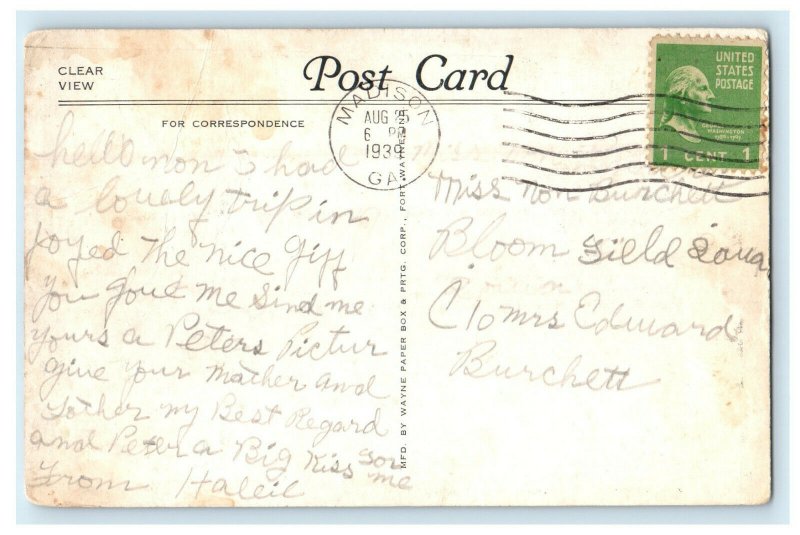 CLEAR
VIEW
Post Card
FOR CORRESPONDENCE
MADISON
AUG 25
6 PM
1939
GA.
UNITED
STATES
POSTAGE
GEORGE
WASHINGTON
1789-1797
1 CENT 1
hello non I had
a lovely trip in
Joyed The nice Giff
you Gove me Sind me
yours a Peters Pictur
Give your mather and
Father my Best Regard
and Peter a Big Kiss For me
From Haleil
MFD. BY WAYNE PAPER BOX & PRTG. CORP., FORT WAYNE, IND.
Miss Non Burchett
Bloom Field Iowa
C/o Mrs Edward
Burchett